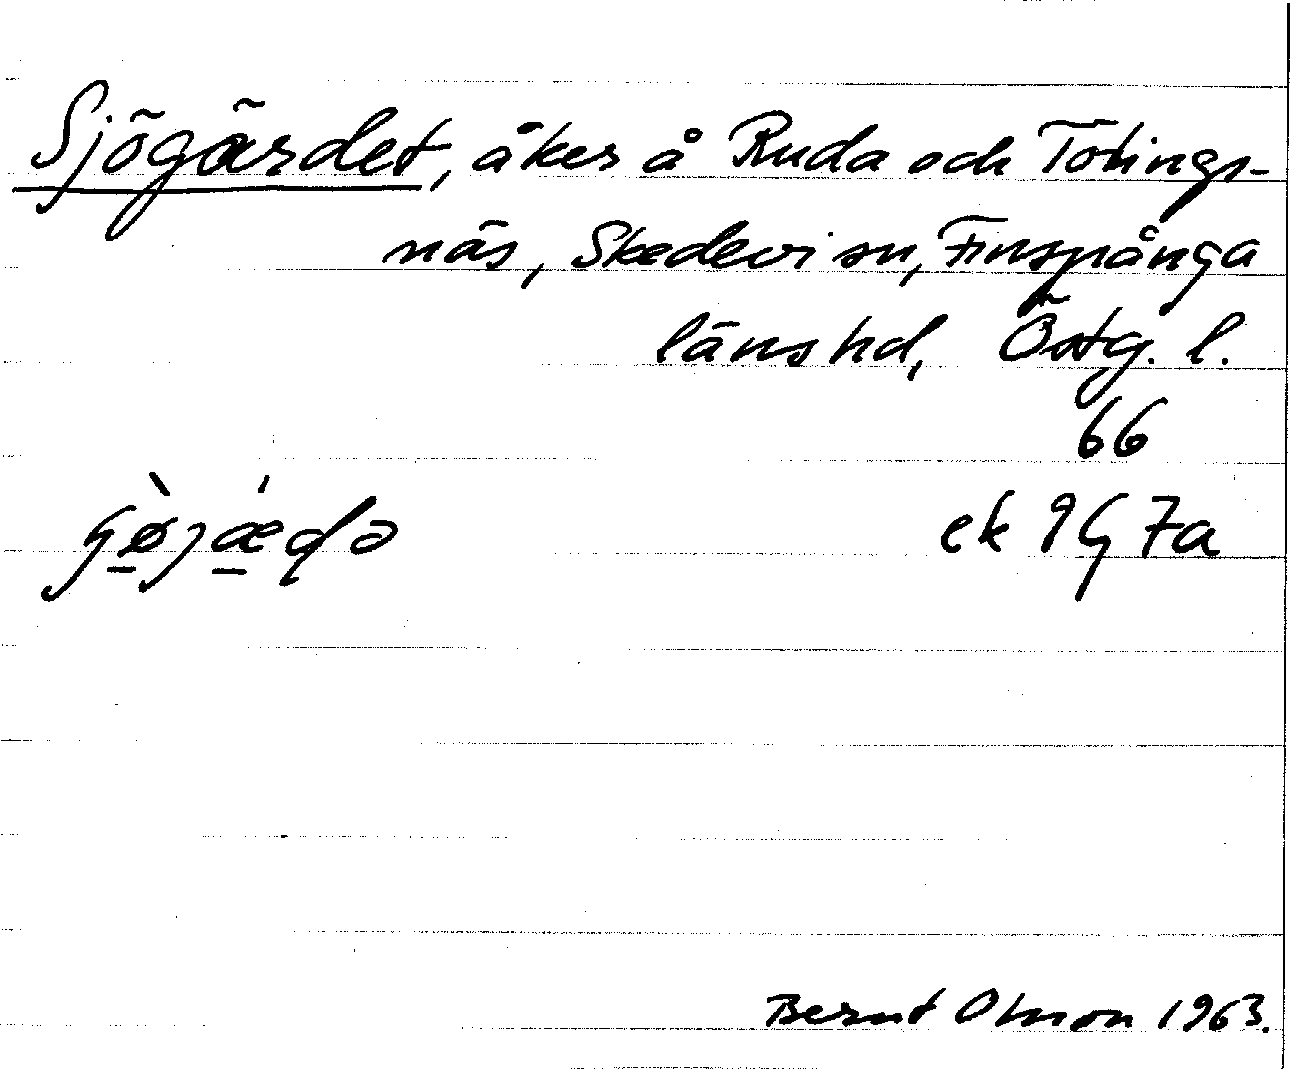 Sjögärdet, åker å Ruda och Tolings-
näs, Skedevi sn, Finspånga
läns hd, Östg. l.
66
ek 9G 7a
Bernt Olsson 1963.